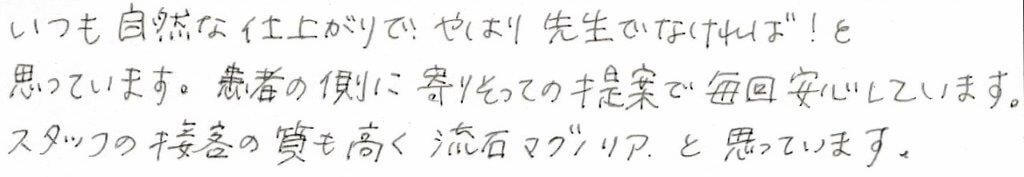 いつも自然な仕上がりで、やはり先生でなければ!と
思っています。患者の側に寄りそっての提案で毎回安心しています。
スタッフの接客の質も高く流石マグノリア.と思っています。